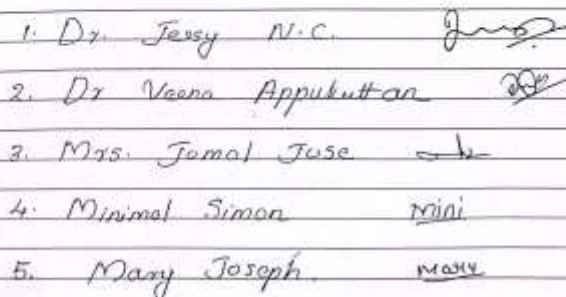 1. Dr. Jessy N.C.
2. Dr Veena Appukuttan
3. Mrs. Jomol Jose
4. Minimol Simon Mini
5. Mary Joseph. Mary